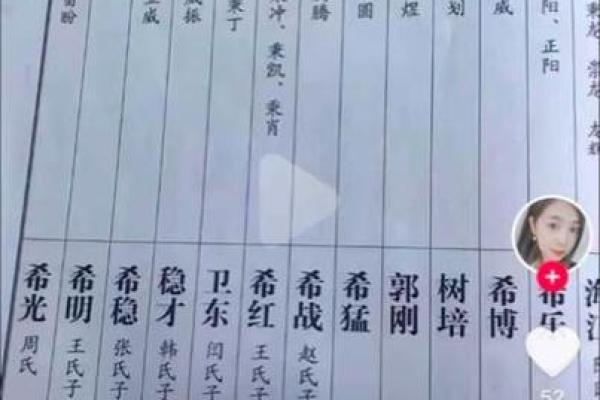 阳、正阳
威
划
煜
圆
腾
冲、秉凯、秉肖
秉丁
威振
威
盼
海江
希乐
希博
树培
郭刚
希猛
希战 赵氏子
希红 王氏子
卫东 闫氏子
稳才 韩氏子
希稳 张氏子
希明 王氏子
希光 周氏
52